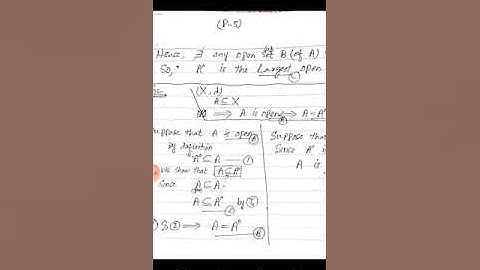 (P-5)
Hence, ∃ any open set B (of A)
So, A° is the Largest open
(X, d)
A ⊆ X
⟹ A is open ⟹ A = A°
suppose that A is open
by definition
A° ⊆ A — ①
we show that A ⊆ A°
since A ⊆ A
A ⊆ A° by
& ② ⟹ A = A°
Suppose that
Since A° is
A is